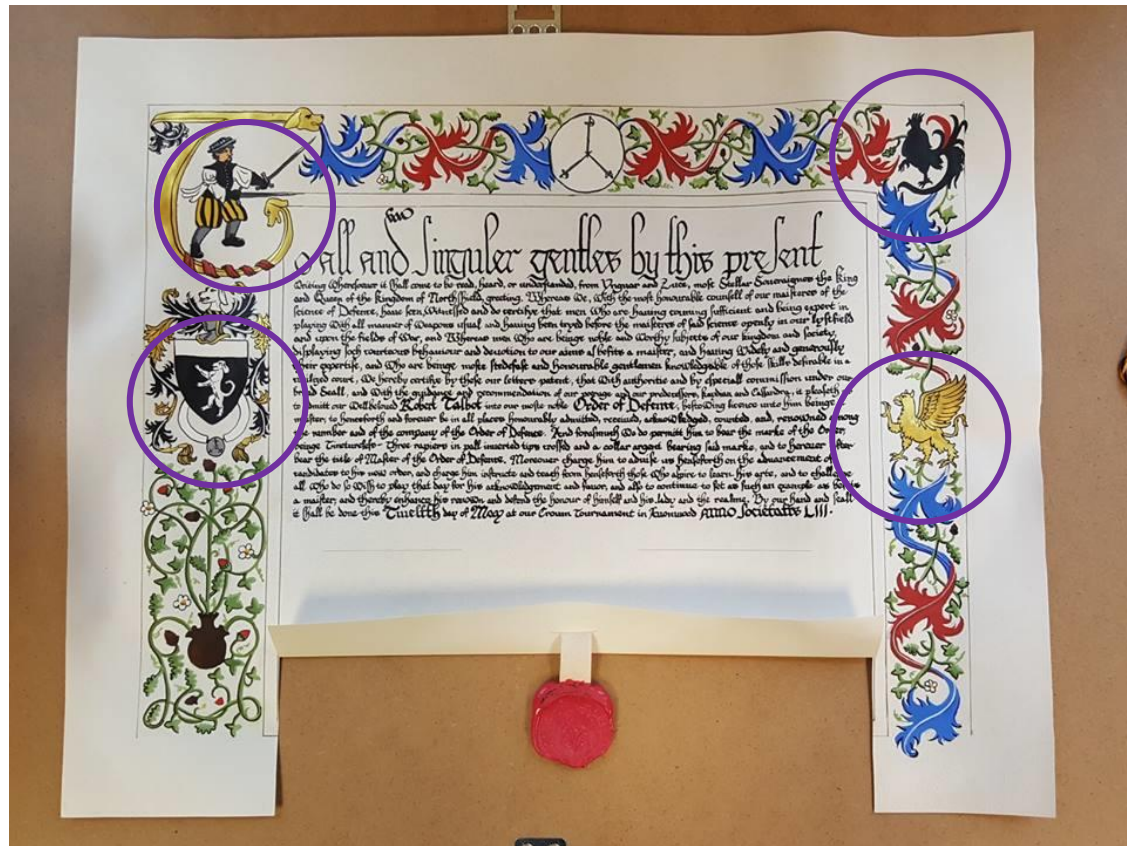 too
all and Singuler gentles by this present
Writing Wheresoever it shall come to be read, heard, or understanded, from Yngvar and Luce, most Stellar Sovereignes the King
and Queen of the Kingdom of Northshield, greeting. Whereas We, With the most honourable counsell of our maisteres of the
science of Defence, have seen Wantised and do certefye that men Who are having conning sufficient and being expert in
playing With all manner of Weapons usual and having been tryed before the maisteres of said science openly in our lystfield
and upon the fields of War, and Whereas men Who are beinge noble and Worthy subjects of our kingdom and society,
displaying soch courteous behaviour and devotion to our aims as befits a maister, and having Widely and generously
their expertise, and Who are beinge most stedefast and honourable gentlemen knowledgable of those skills desirable in a
court, We hereby certefye by these our letters patent, that With authoritie and by especiall commission under our
broad Seall, and With the guidance and recommendation of our peerage and our predecessors, Kaydian and Cassandra, it pleaseth us
to admitt our Wellbeloved Robert Talbot into our moste noble Order of Defence, bestowing licence unto him beinge
maister, to henesforth and forever be in all places honourably admitted, received, acknowledged, counted, and, renowned among
the number and of the company of the Order of Defence. And forasmuch We do permitt him to bear the marke of the Order,
beinge Tinctureless - Three rapiers in pall inverted tips crossed and a collar argent bearing said marke, and to herever after
bear the title of Master of the Order of Defence. Moreover charge him to advise us hensforth on the advancement of
candidates to his new order, and charge him instructe and teach from henseforth those Who aspire to learn his arte, and to challenge
all Who do so Wish to play that day for his acknowledgement and favor, and also to continue to set as such an example as befits
a maister, and thereby enhance his renown and defend the honour of himself and his lady and the realme. By our hand and seall
it shall be done this Twelfth day of May at our Crown Tournament in Avonwood Anno Societatis LIII.